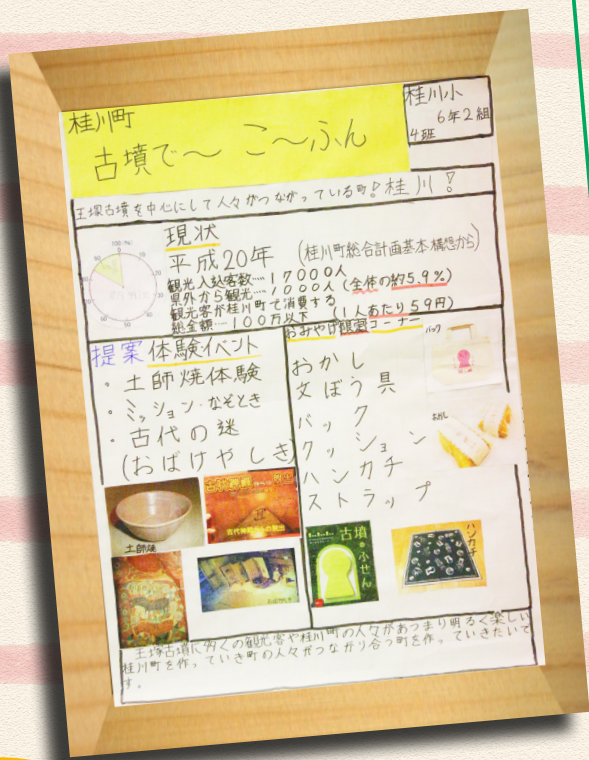 桂川町
古墳で〜 こ〜ふん
桂川小
6年2組
4班
王塚古墳を中心にして人々がつながっている町!桂川!
現状
平成20年 (桂川町総合計画基本構想から)
観光入込客数‥‥17000人
県外から観光‥‥1000人(全体の約5.9%)
観光客が桂川町で消費する
総金額‥‥100万以下 (1人あたり59円)
提案 体験イベント
・土師焼体験
・ミッション・なぞとき
・古代の迷
(おばけやしき)
土師焼
おみやげ コーナー
おかし
文ぼう具
バック
クッション
ハンカチ
ストラップ
バック
古墳のふせん
ハンカチ
王塚古墳に多くの観光客や桂川町の人々があつまり明るく楽しい
桂川町を作っていき町の人々がつながり合う町を作っていきたいで
す。